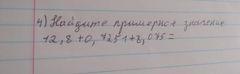 4) Найдите примерное значение
12,8+0,7251+8,045=